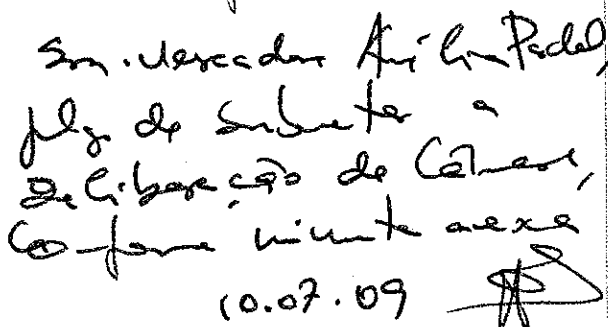 Sra. Vereadora Ana Lina Padel,
julgo de submeter a
deliberação de Câmara,
conforme minuta anexa
10.07.09